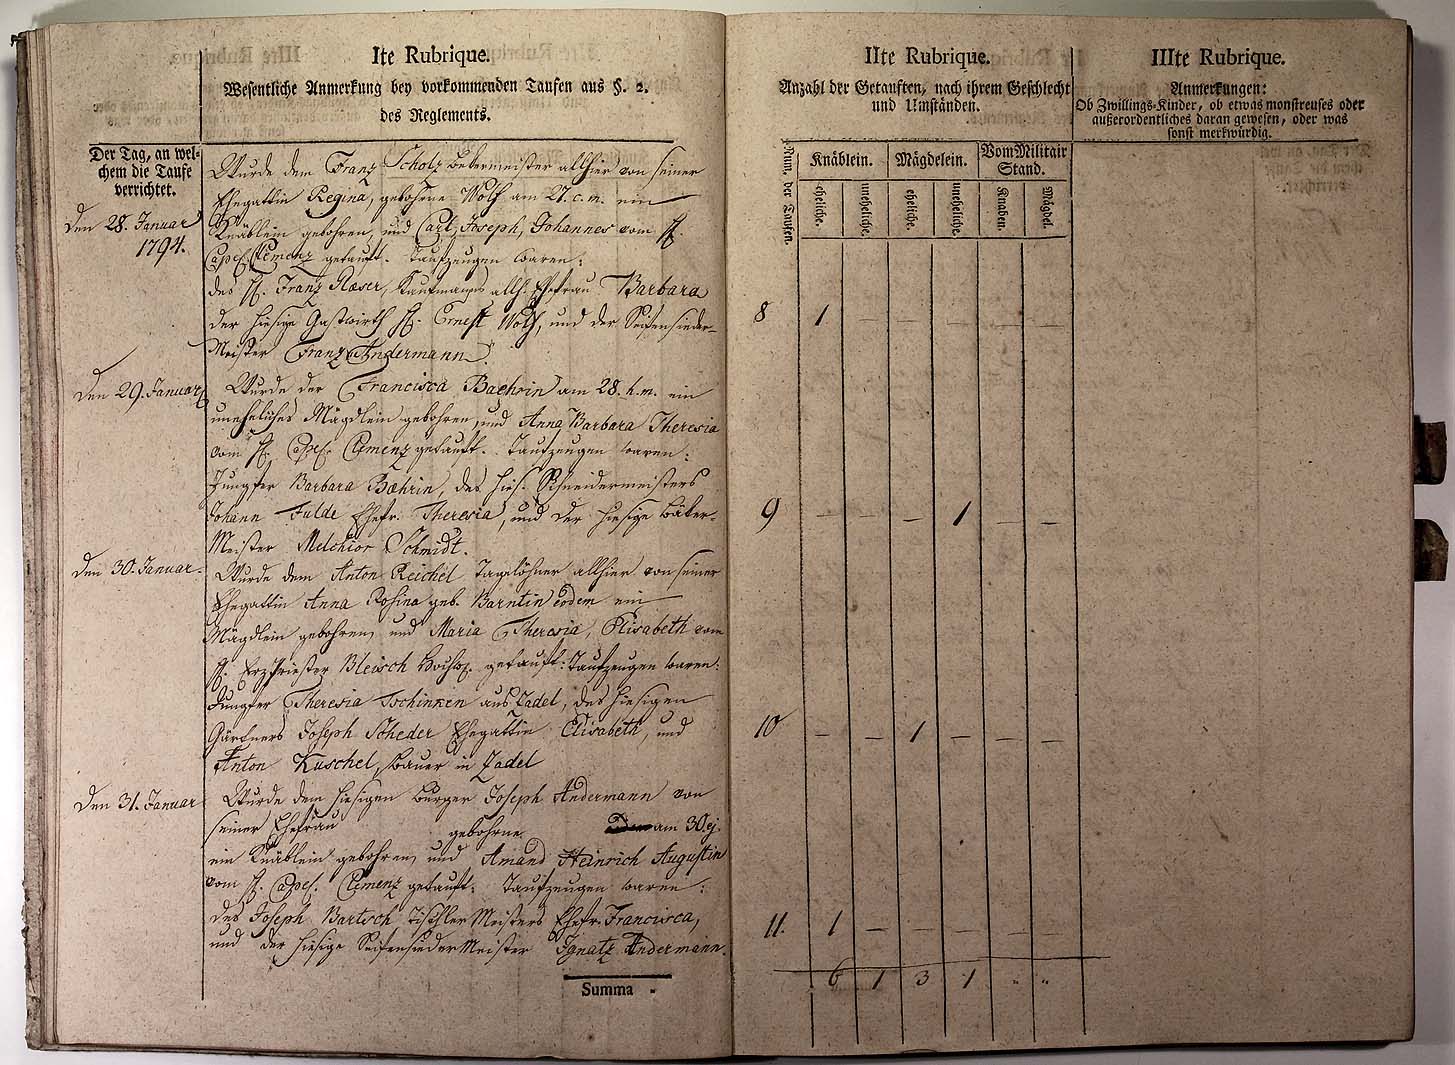 Ite Rubrique.
Wesentliche Anmerkung bey vorkommenden Taufen aus §. 2.
des Reglements.
Der Tag, an wel-
chem die Taufe
verrichtet.
Den 28. Januar
1794.
Wurde dem Franz Scholz Bekermeister allhier von seiner
Ehegattin Regina, gebohrne Wolf am 27. c. m. ein
Knäblein gebohren, und Carl, Joseph, Johannes vom H.
Capel. Clemenz getauft. Taufzeugen waren:
des H. Franz Kaufmanns allh. Ehefrau Barbara
der hiesige Gastwirth H. Ernest Wolf, und der Seifensieder-
Meister Franz Andermann.
Den 29. Januar
Wurde der Francisca Baehrin am 28. h. m. ein
uneheliches Mägdlein gebohren, und Anna Barbara Theresia
vom H. Capel. Clemenz getauft. Taufzeugen waren:
Jungfer Barbara Baehrin, des hies. Schneidermeisters
Johann Fulde Ehefr. Theresia, und der hiesige Bäker-
Meister Melchior Schmidt.
Den 30. Januar.
Wurde dem Anton Reichel Tagelöhner allhier von seiner
Ehegattin Anna Rosina geb. Barntin eodem ein
Mägdlein gebohren, und Maria Theresia, Elisabeth vom
H. Erzpriester Bleisch getauft: Taufzeugen waren:
Jungfer Theresia Tschinken aus Zadel, des hiesigen
Gärtners Joseph Scheder Ehegattin Elisabeth, und
Anton Kuschel, Bauer in Zadel
Den 31. Januar
Wurde dem hiesigen Bürger Joseph Andermann von
seiner Ehefrau gebohrne am 30. ej.
ein Knäblein gebohren, und Amand Heinrich Augustin
vom H. Capel. Clemenz getauft. Taufzeugen waren:
des Joseph Bartsch Tischler Meisters Ehefr. Francisca,
und der hiesige Seifensieder Meister Ignatz Andermann.
Summa
IIte Rubrique.
Anzahl der Getauften, nach ihrem Geschlecht
und Umständen.
Num. der Taufen.
Knäblein. Mägdelein. Vom Militair
Stand.
eheliche. uneheliche. eheliche. uneheliche. Knaben. Mägdel.
8 1 — — — — —
9 — — — 1 — —
10 — — 1 — — —
11. 1 — — — — —
6 1 3 1 " "
IIIte Rubrique.
Anmerkungen:
Ob Zwillings-Kinder, ob etwas monstreuses oder
außerordentliches daran gewesen, oder was
sonst merkwürdig.